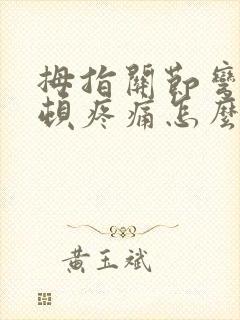 拇指關節彎
頓疼痛怎麼
黃玉斌